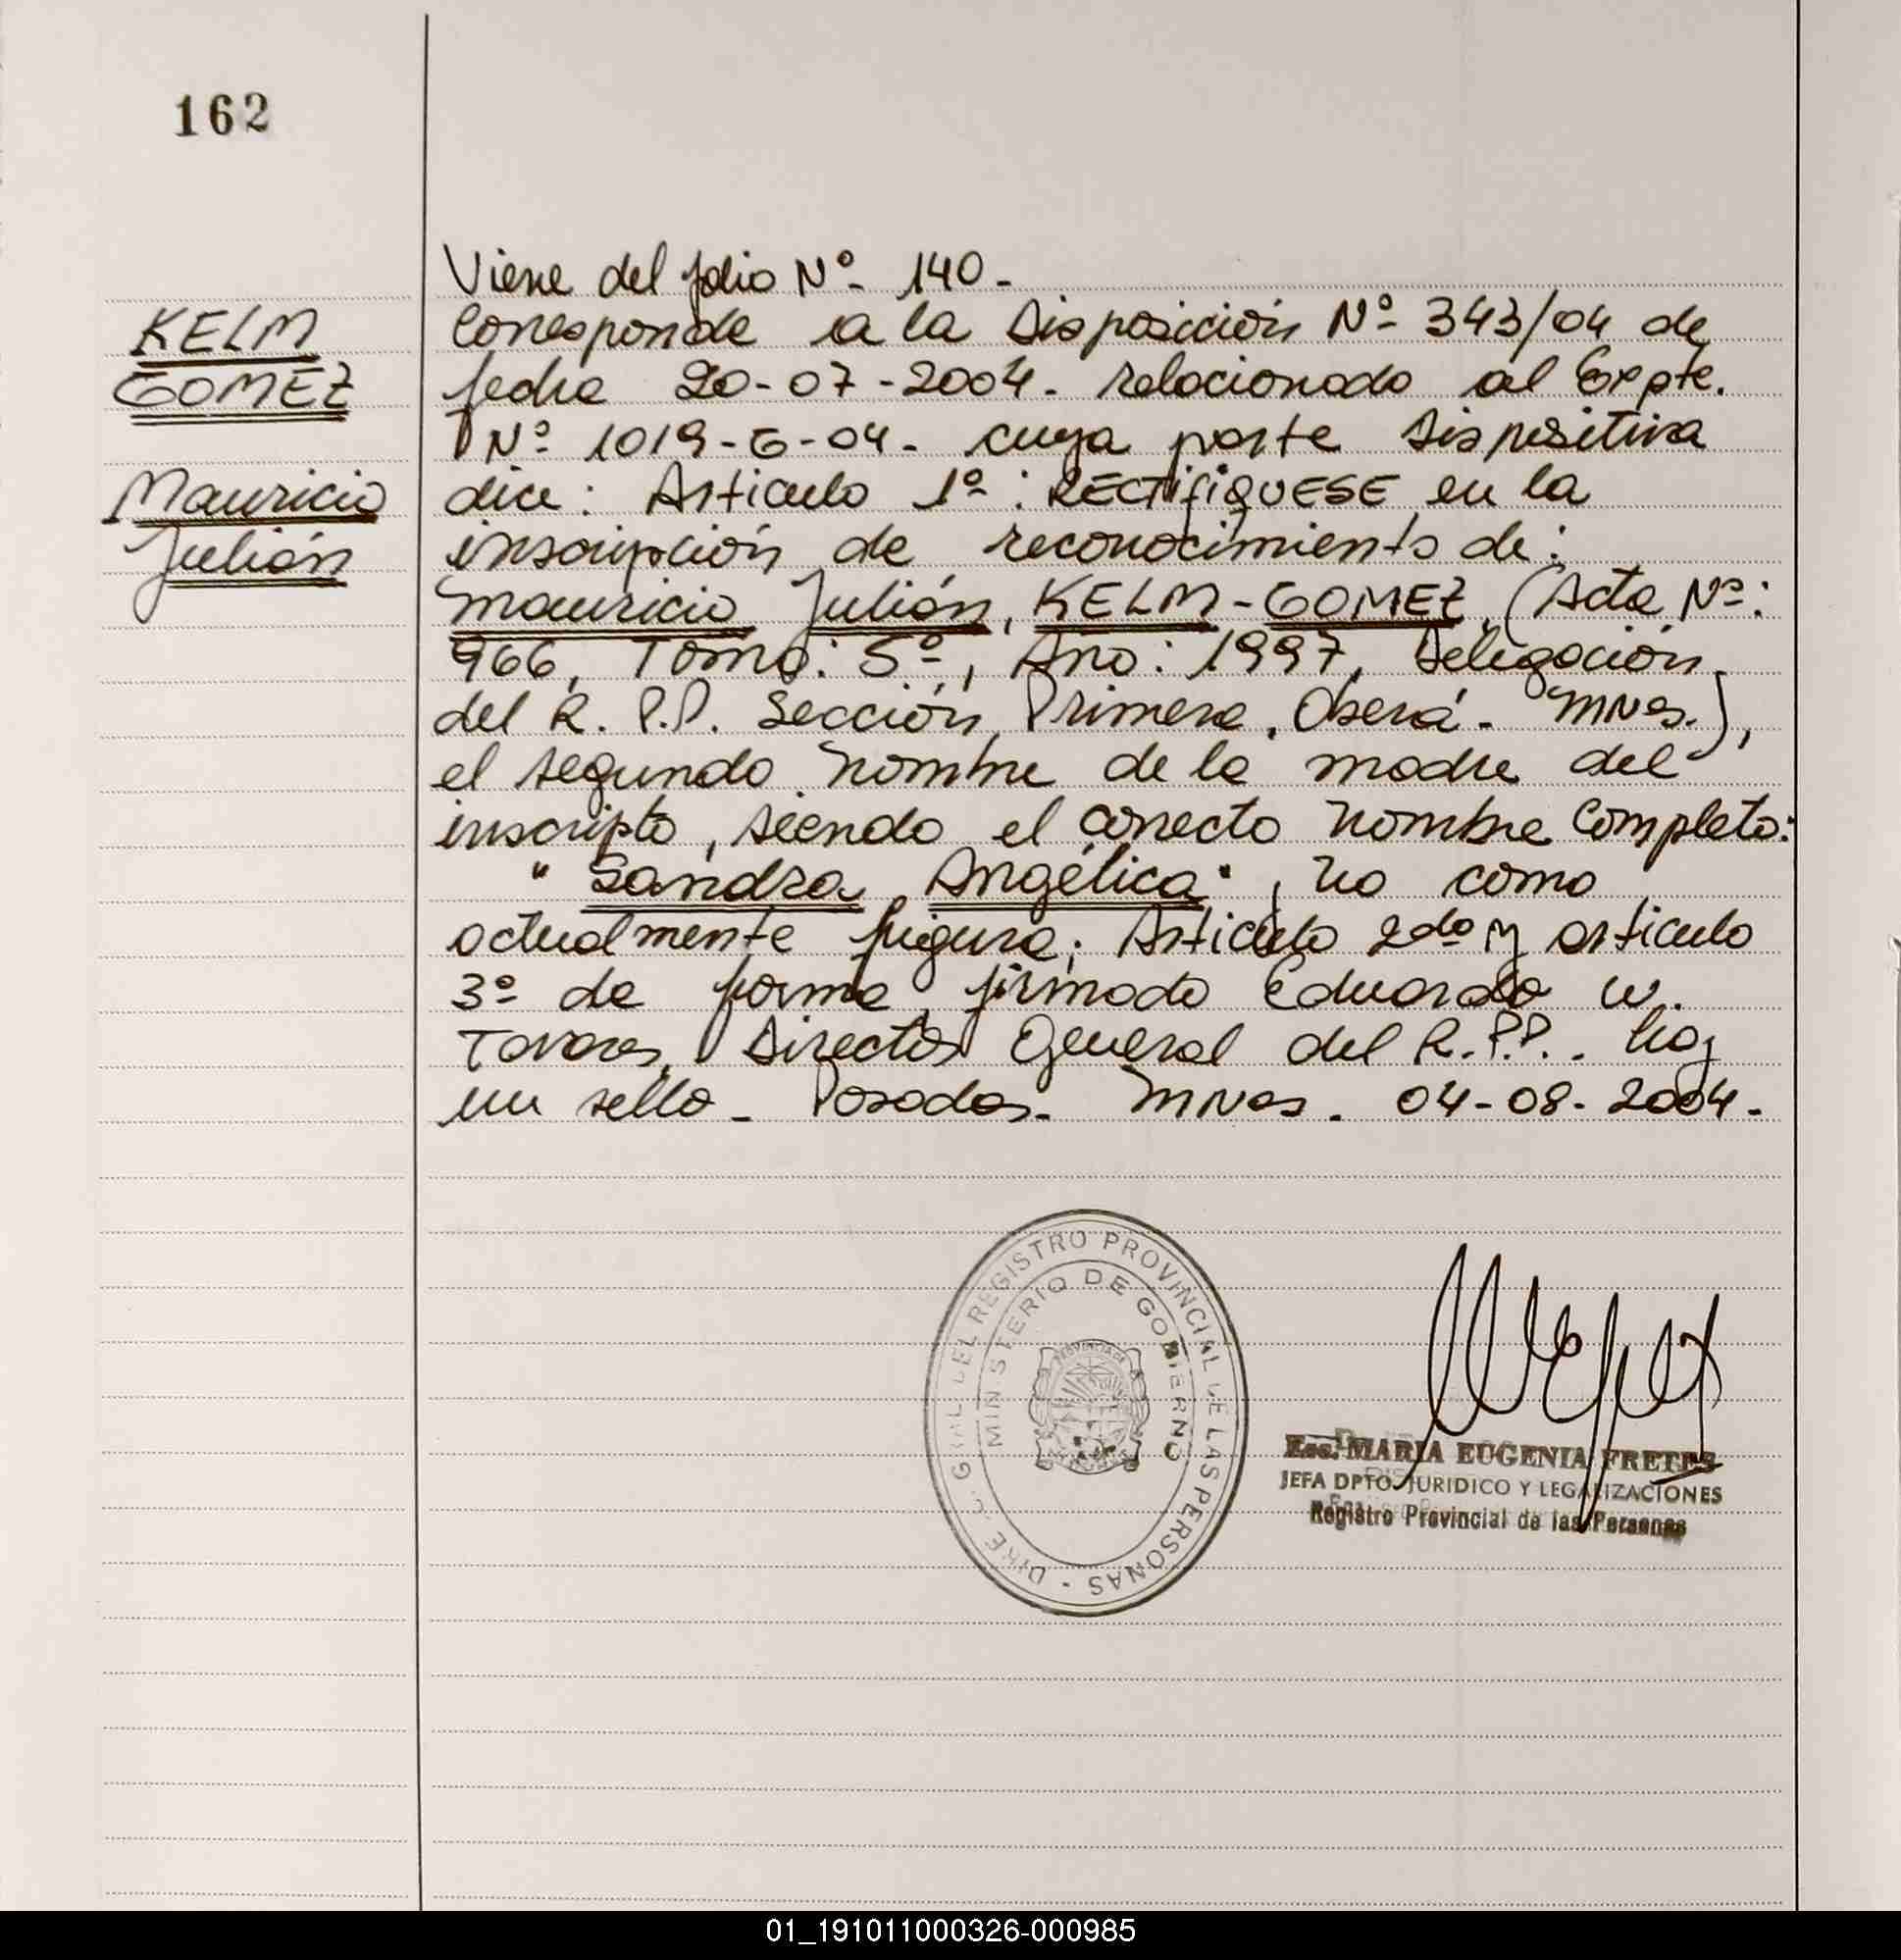 162
KELM
GOMEZ
Mauricio
Julián
Viene del folio Nº 140-
Corresponde a la Disposición Nº 343/04 de
fecha 20-07-2004. relacionado al Expte.
Nº 1019-G-04- cuya parte dispositiva
dice: Articulo 1º: RECTIFIQUESE en la
inscripción de reconocimiento de:
Mauricio Julián, KELM-GOMEZ, (Acta Nº:
966, Tomo: 5º, Año: 1997, Delegación
del R.P.P. Sección Primera, Oberá- Mnes.),
el segundo nombre de la madre del
inscripto, siendo el correcto nombre completo:
"Sandra Angélica", no como
actualmente figura; Articulo 2do y articulo
3º de forma firmado Eduardo W.
Tavares, Director General del R.P.P.. hay
un sello- Posadas- Mnes. 04-08-2004.
DIREC. GRAL. DEL REGISTRO PROVINCIAL DE LAS PERSONAS -
MINISTERIO DE GOBIERNO
Esc. MARIA EUGENIA FRETES
JEFA DPTO. JURIDICO Y LEGALIZACIONES
Registro Provincial de las Personas
01_191011000326-000985